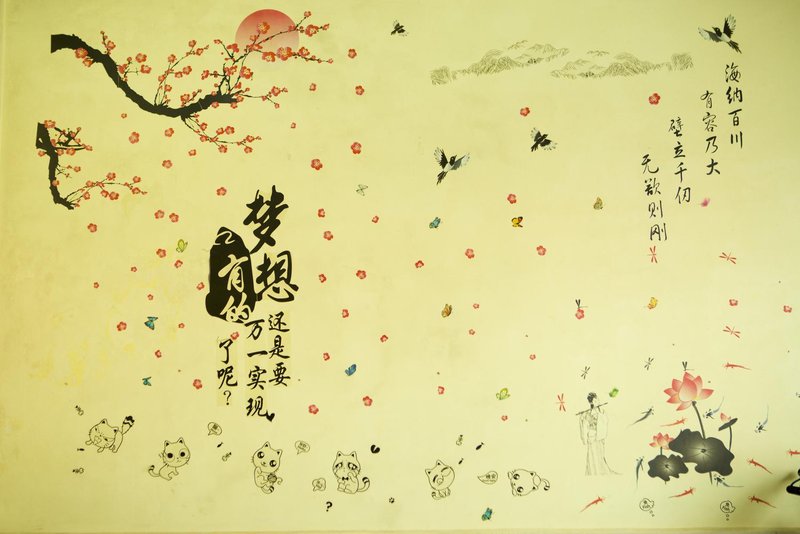 海纳百川
有容乃大
壁立千仞
无欲则刚
梦想
还是要
有的
万一实现
了呢？
?